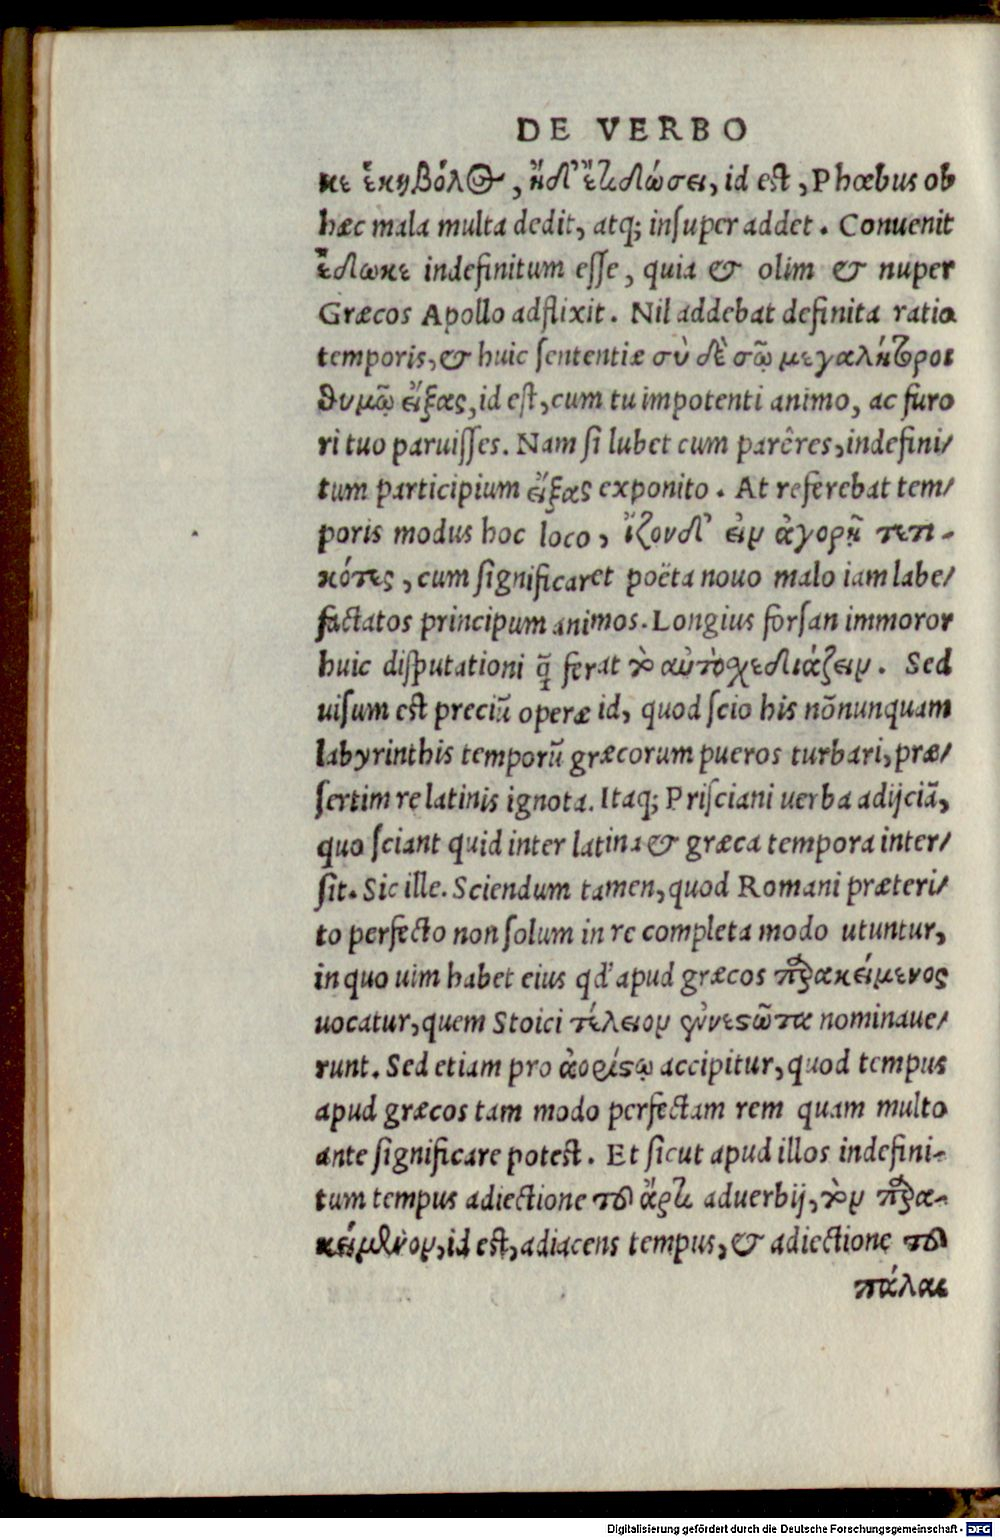 DE VERBO
κε ἑκηβόλος, ἠδ' ἔτι δώσει, id est, Phœbus ob
hæc mala multa dedit, atq; inſuper addet. Conuenit
ἔδωκε indefinitum eſſe, quia & olim & nuper
Græcos Apollo adflixit. Nil addebat definita ratio
temporis, & huic ſententiæ σὺ δὲ σῷ μεγαλήτορι
θυμῷ εἴξας, id eſt, cum tu impotenti animo, ac furo
ri tuo paruiſſes. Nam ſi lubet cum parêres, indefini/
tum participium εἴξας exponito. At referebat tem/
poris modus hoc loco, ἵζον δ' εἰν ἀγορῇ τετι-
κότες, cum ſignificaret poëta nouo malo iam labe/
factatos principum animos. Longius forſan immoror
huic diſputationi q̃ ferat τὸ αὐτοσχεδιάζειν. Sed
uiſum eſt preciũ operæ id, quod ſcio his nõnunquam
labyrinthis temporũ græcorum pueros turbari, præ/
ſertim re latinis ignota. Itaq; Priſciani uerba adijciã,
quo ſciant quid inter latina & græca tempora inter/
ſit. Sic ille. Sciendum tamen, quod Romani præteri/
to perfecto non ſolum in re completa modo utuntur,
in quo uim habet eius qd' apud græcos παρακείμενος
uocatur, quem Stoici τέλειον ἐνεστῶτα nominaue/
runt. Sed etiam pro ἀορίστῳ accipitur, quod tempus
apud græcos tam modo perfectam rem quam multo
ante ſignificare poteſt. Et ſicut apud illos indefini-
tum tempus adiectione τοῦ ἄρτι aduerbij, τὸν παρα-
κείμενον, id eſt, adiacens tempus, & adiectione τοῦ
πάλαι
Digitalisierung gefördert durch die Deutsche Forschungsgemeinschaft - DFG